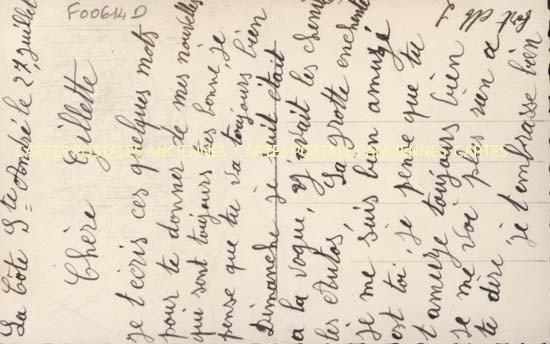 F00614D
La Côte St André le 27 Juillet
Chère Gillette
Je t'écris ces quelques mots
pour te donner de mes nouvelles
qui sont toujours très bonne, je
pense que tu va toujours bien
Dimanche je suis était
a la vogue, y avait les cheni
les Autos, La grotte enchenté
je me suis bien amusé
est toi, je pense que tu
t'amuze toujours bien
je me voi pas rien a
te dire je t'embrasse bien
fort
CARTES POSTALES ANCIENNES CARTES POSTALES ANCIENNES CARTES